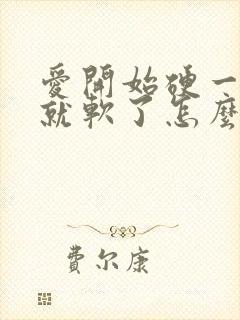 愛開始硬一
就軟了怎麼
費尔康